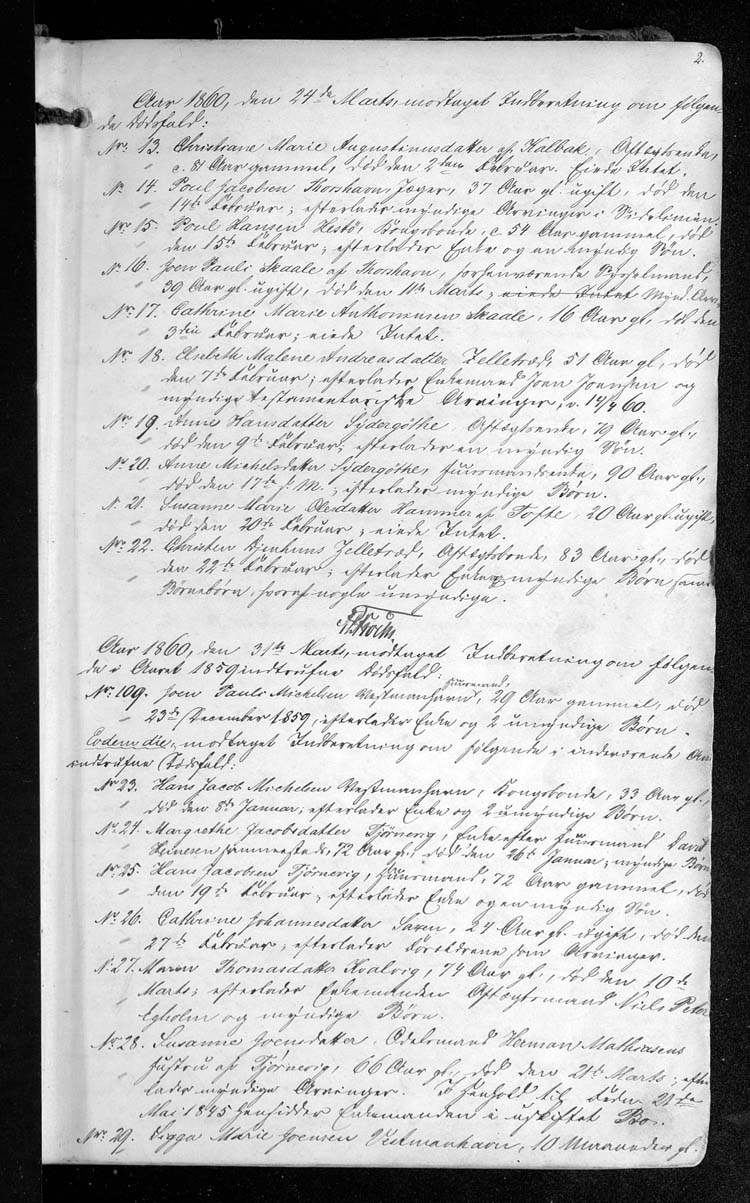 2.
Aar 1860, den 24de Marts, modtaget Indberetning om følgen-
de Dødsfald:
No. 13. Christiane Marie Augustinusdatter af Kalbak, Aftægtsenke,
" c. 81 Aar gammel, død den 2den Februar. Eiede Intet.
No. 14. Poul Jacobsen Thorshavn, Jæger, 37 Aar gl. ugift, død den
" 14de Februar; efterlader myndige Arvinger i Sidelinien.
No. 15. Poul Hansen Hestø, Kongsbonde, c 54 Aar gammel, død
" den 15de Februar; efterlader Enke og en myndig Søn.
No. 16. Joen Pauli Skaale af Thorshavn, forhenværende Sysselmand,
" 39 Aar gl. ugift, død den 11te Marts; eiede Intet Mynd. Arv.
No. 17. Cathrine Marie Anthoniusen Skaale, 16 Aar gl., død den
" 3die Februar; eiede Intet.
No. 18. Elsebeth Malene Andreasdatter Zelletræd, 51 Aar gl., død
" den 7de Februar; efterlader Enkemand Joen Joensen og
" myndige testamentariske Arvinger, v. 14/4 60.
No. 19. Anne Hansdatter Sydergöthe, Aftægtsenke, 79 Aar gl.,
" død den 9de Februar; efterlader en myndig Søn.
No. 20. Anne Michelsdatter Sydergöthe, Huusmandsenke, 90 Aar gl.,
" død den 17de s. M.; efterlader myndige Børn.
N. 21. Susanne Marie Olesdatter Hammer af Tofte, 20 Aar gl. ugift,
" død den 20de Februar; eiede Intet.
No. 22. Christen Djonhuus Zelletræd, Aftægtsbonde, 83 Aar gl., død
" den 22de Februar; efterlader Enke og myndige Børn samt
" Børnebørn, hvoraf nogle umyndige.
Aar 1860, den 31te Marts, modtaget Indberetning om følgen-
de i Aaret 1859 indtrufne Dødsfald:
Huusmand,
No. 109. Joen Pauli Michelsen Vestmanhavn, 29 Aar gammel, død
" 23de December 1859, efterlader Enke og 2 umyndige Børn.
Eodem die, modtaget Indberetning om følgende i indeværende Aar
indtrufne Dødsfald:
No. 23. Hans Jacob Michelsen Vestmanhavn, Kongsbonde, 33 Aar gl.,
" død den 8de Januar; efterlader Enke og 2 umyndige Børn.
No. 24. Margrethe Jacobsdatter Tjørnevig, Enke efter Huusmand David
" Heinesen sammesteds, 72 Aar gl., død den 26de Januar; myndige Børn
No. 25. Hans Jacobsen Tjørnevig, Huusmand, 72 Aar gammel, død
" den 19de Februar, efterlader Enke og en myndig Søn.
No. 26. Cathrine Johannesdatter Saxen, 24 Aar gl. ugift, død den
" 27de Februar; efterlader Forældrene som Arvinger.
N. 27. Maren Thomasdatter Hvalvig, 74 Aar gl., død den 10de
" Marts; efterlader Enkemanden Aftægtsmand Niels Peter
Egholm og myndige Børn.
No. 28. Susanne Joensdatter, Odelsmand Herman Mathiasens
" Hustru af Tjørnevig, 66 Aar gl., død den 21de Marts; efter-
lader myndige Arvinger. I Henhold til Fdn. 21de
Mai 1845 henhidder Enkemanden i uskiftet Bo.
No. 29. Sigga Marie Joensen Vestmanhavn, 10 Maaneder gl.